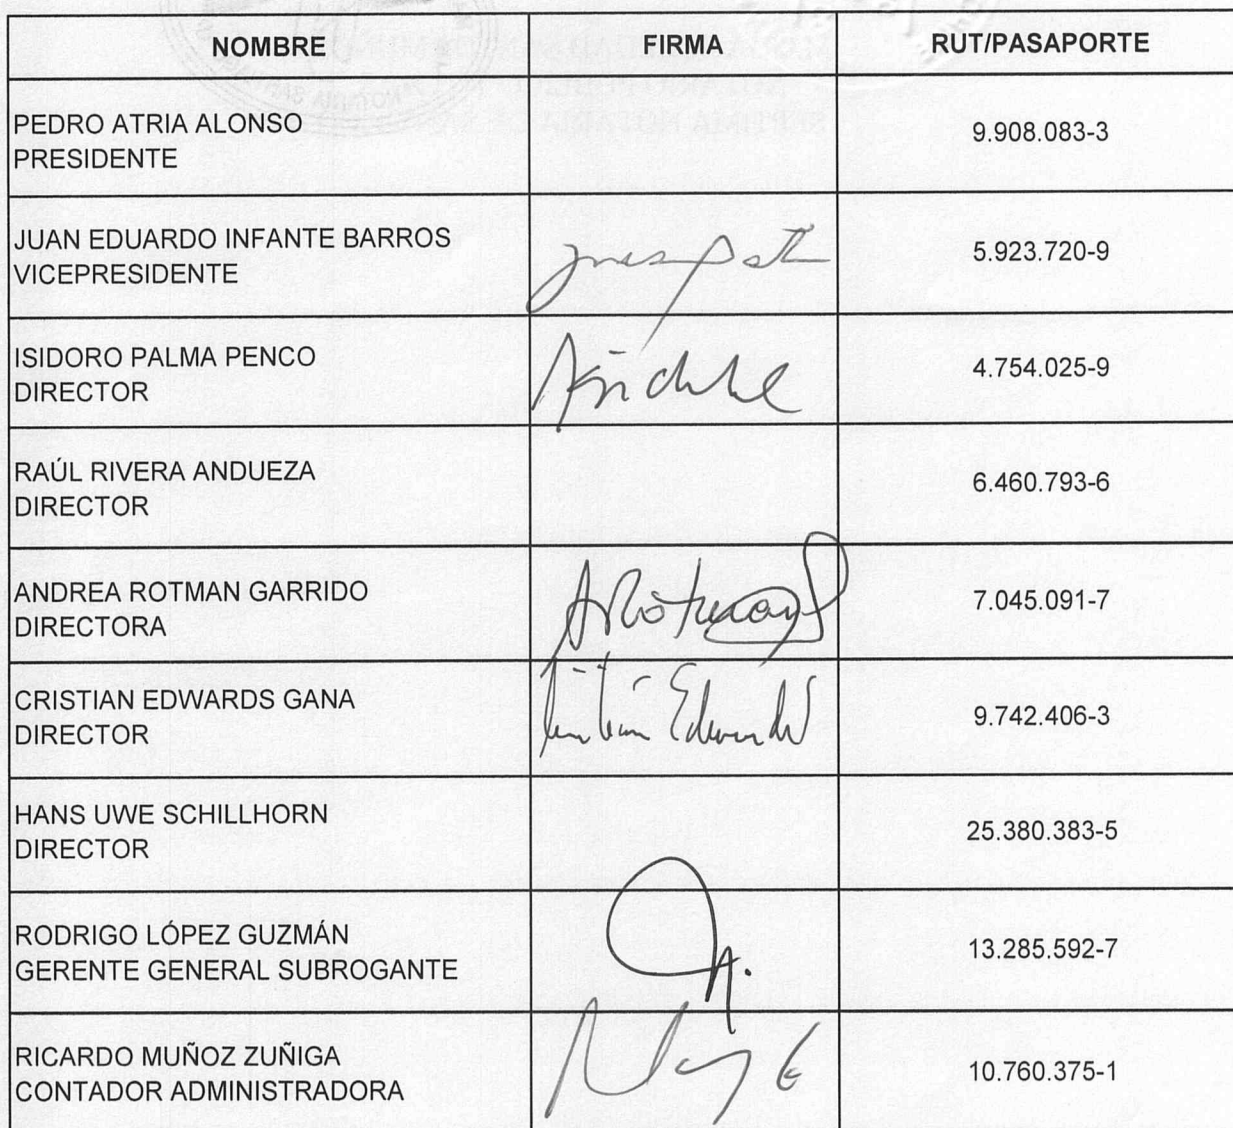 NOMBRE FIRMA RUT/PASAPORTE
PEDRO ATRIA ALONSO
PRESIDENTE
9.908.083-3
JUAN EDUARDO INFANTE BARROS
VICEPRESIDENTE
5.923.720-9
ISIDORO PALMA PENCO
DIRECTOR
4.754.025-9
RAÚL RIVERA ANDUEZA
DIRECTOR
6.460.793-6
ANDREA ROTMAN GARRIDO
DIRECTORA
7.045.091-7
CRISTIAN EDWARDS GANA
DIRECTOR
9.742.406-3
HANS UWE SCHILLHORN
DIRECTOR
25.380.383-5
RODRIGO LÓPEZ GUZMÁN
GERENTE GENERAL SUBROGANTE
13.285.592-7
RICARDO MUÑOZ ZUÑIGA
CONTADOR ADMINISTRADORA
10.760.375-1